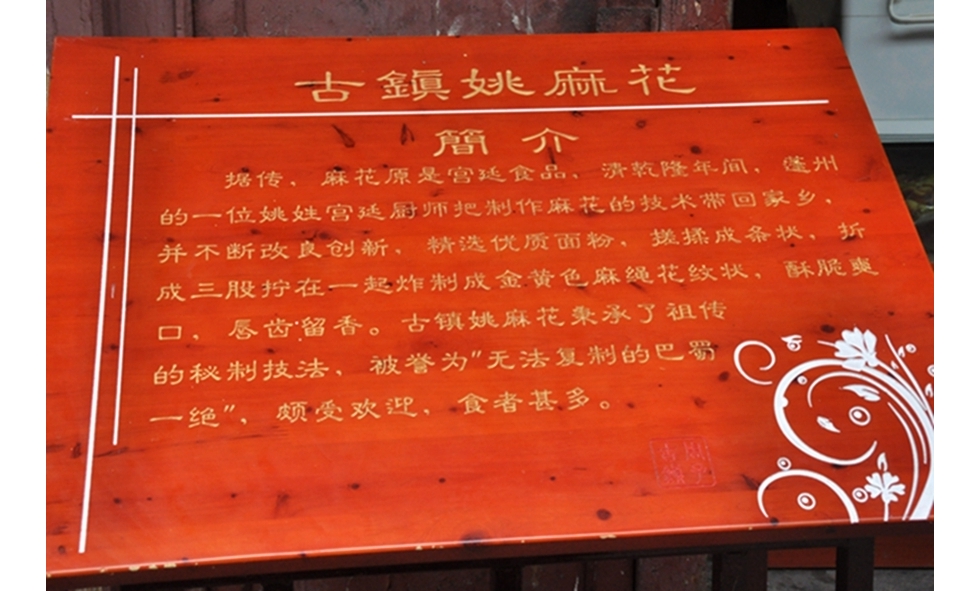 古鎮姚麻花
簡介
据传，麻花原是宫廷食品，清乾隆年间，蓬州
的一位姚姓宫廷厨师把制作麻花的技术带回家乡，
并不断改良创新，精选优质面粉，搓揉成条状，折
成三股拧在一起炸制成金黄色麻绳花纹状，酥脆爽
口，唇齿留香。古镇姚麻花秉承了祖传
的秘制技法，被誉为"无法复制的巴蜀
一绝"，颇受欢迎，食者甚多。